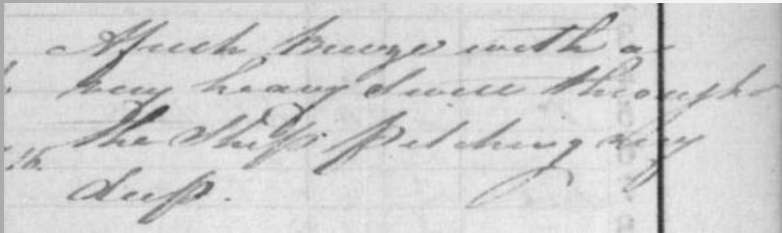 A fresh breeze with a
very heavy swell through
the Ship pitching very
deep.